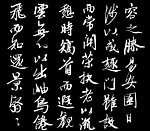 容膝之易安園日
涉以成趣門雖設
而常關策扶老以流
憩時矯首而遐觀
雲無心以出岫鳥倦
飛而知還景翳翳